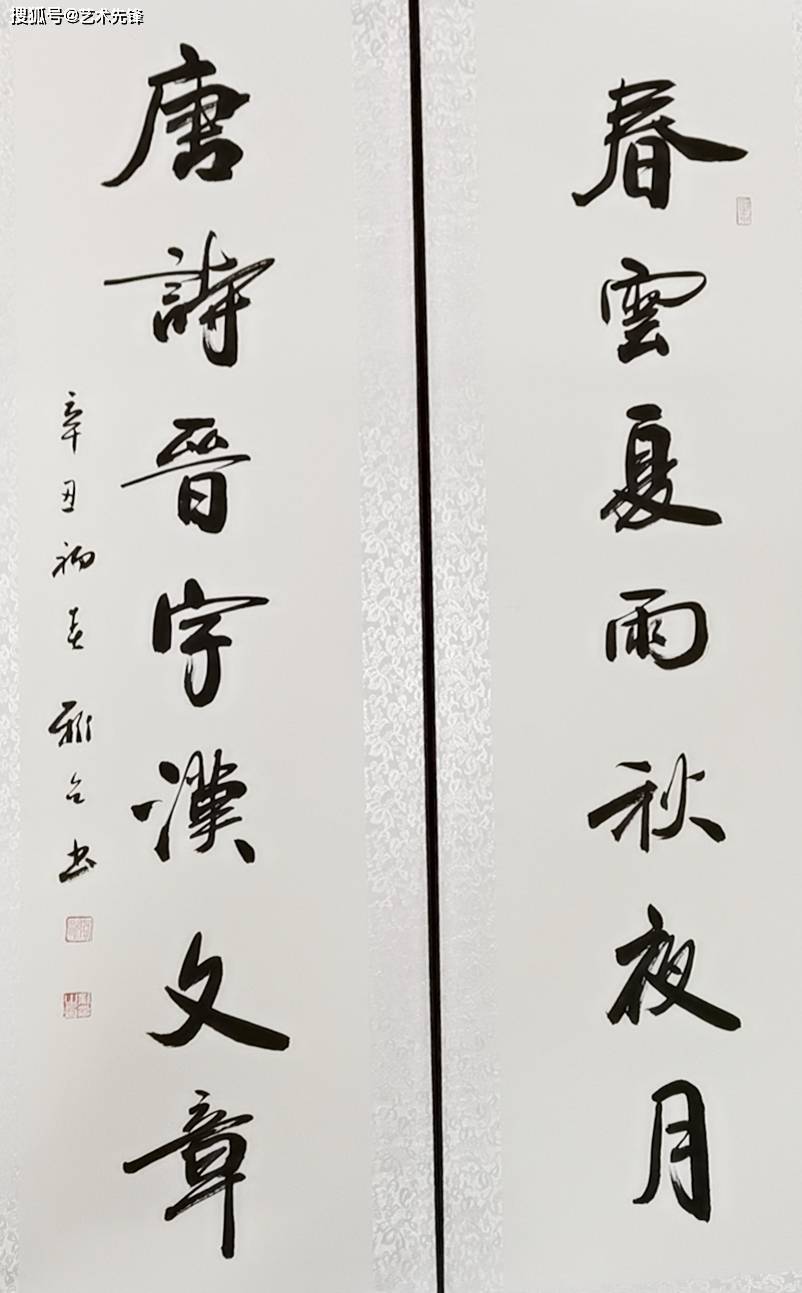 搜狐号@艺术先锋
春雲夏雨秋夜月
唐詩晉字漢文章
辛丑初春
书